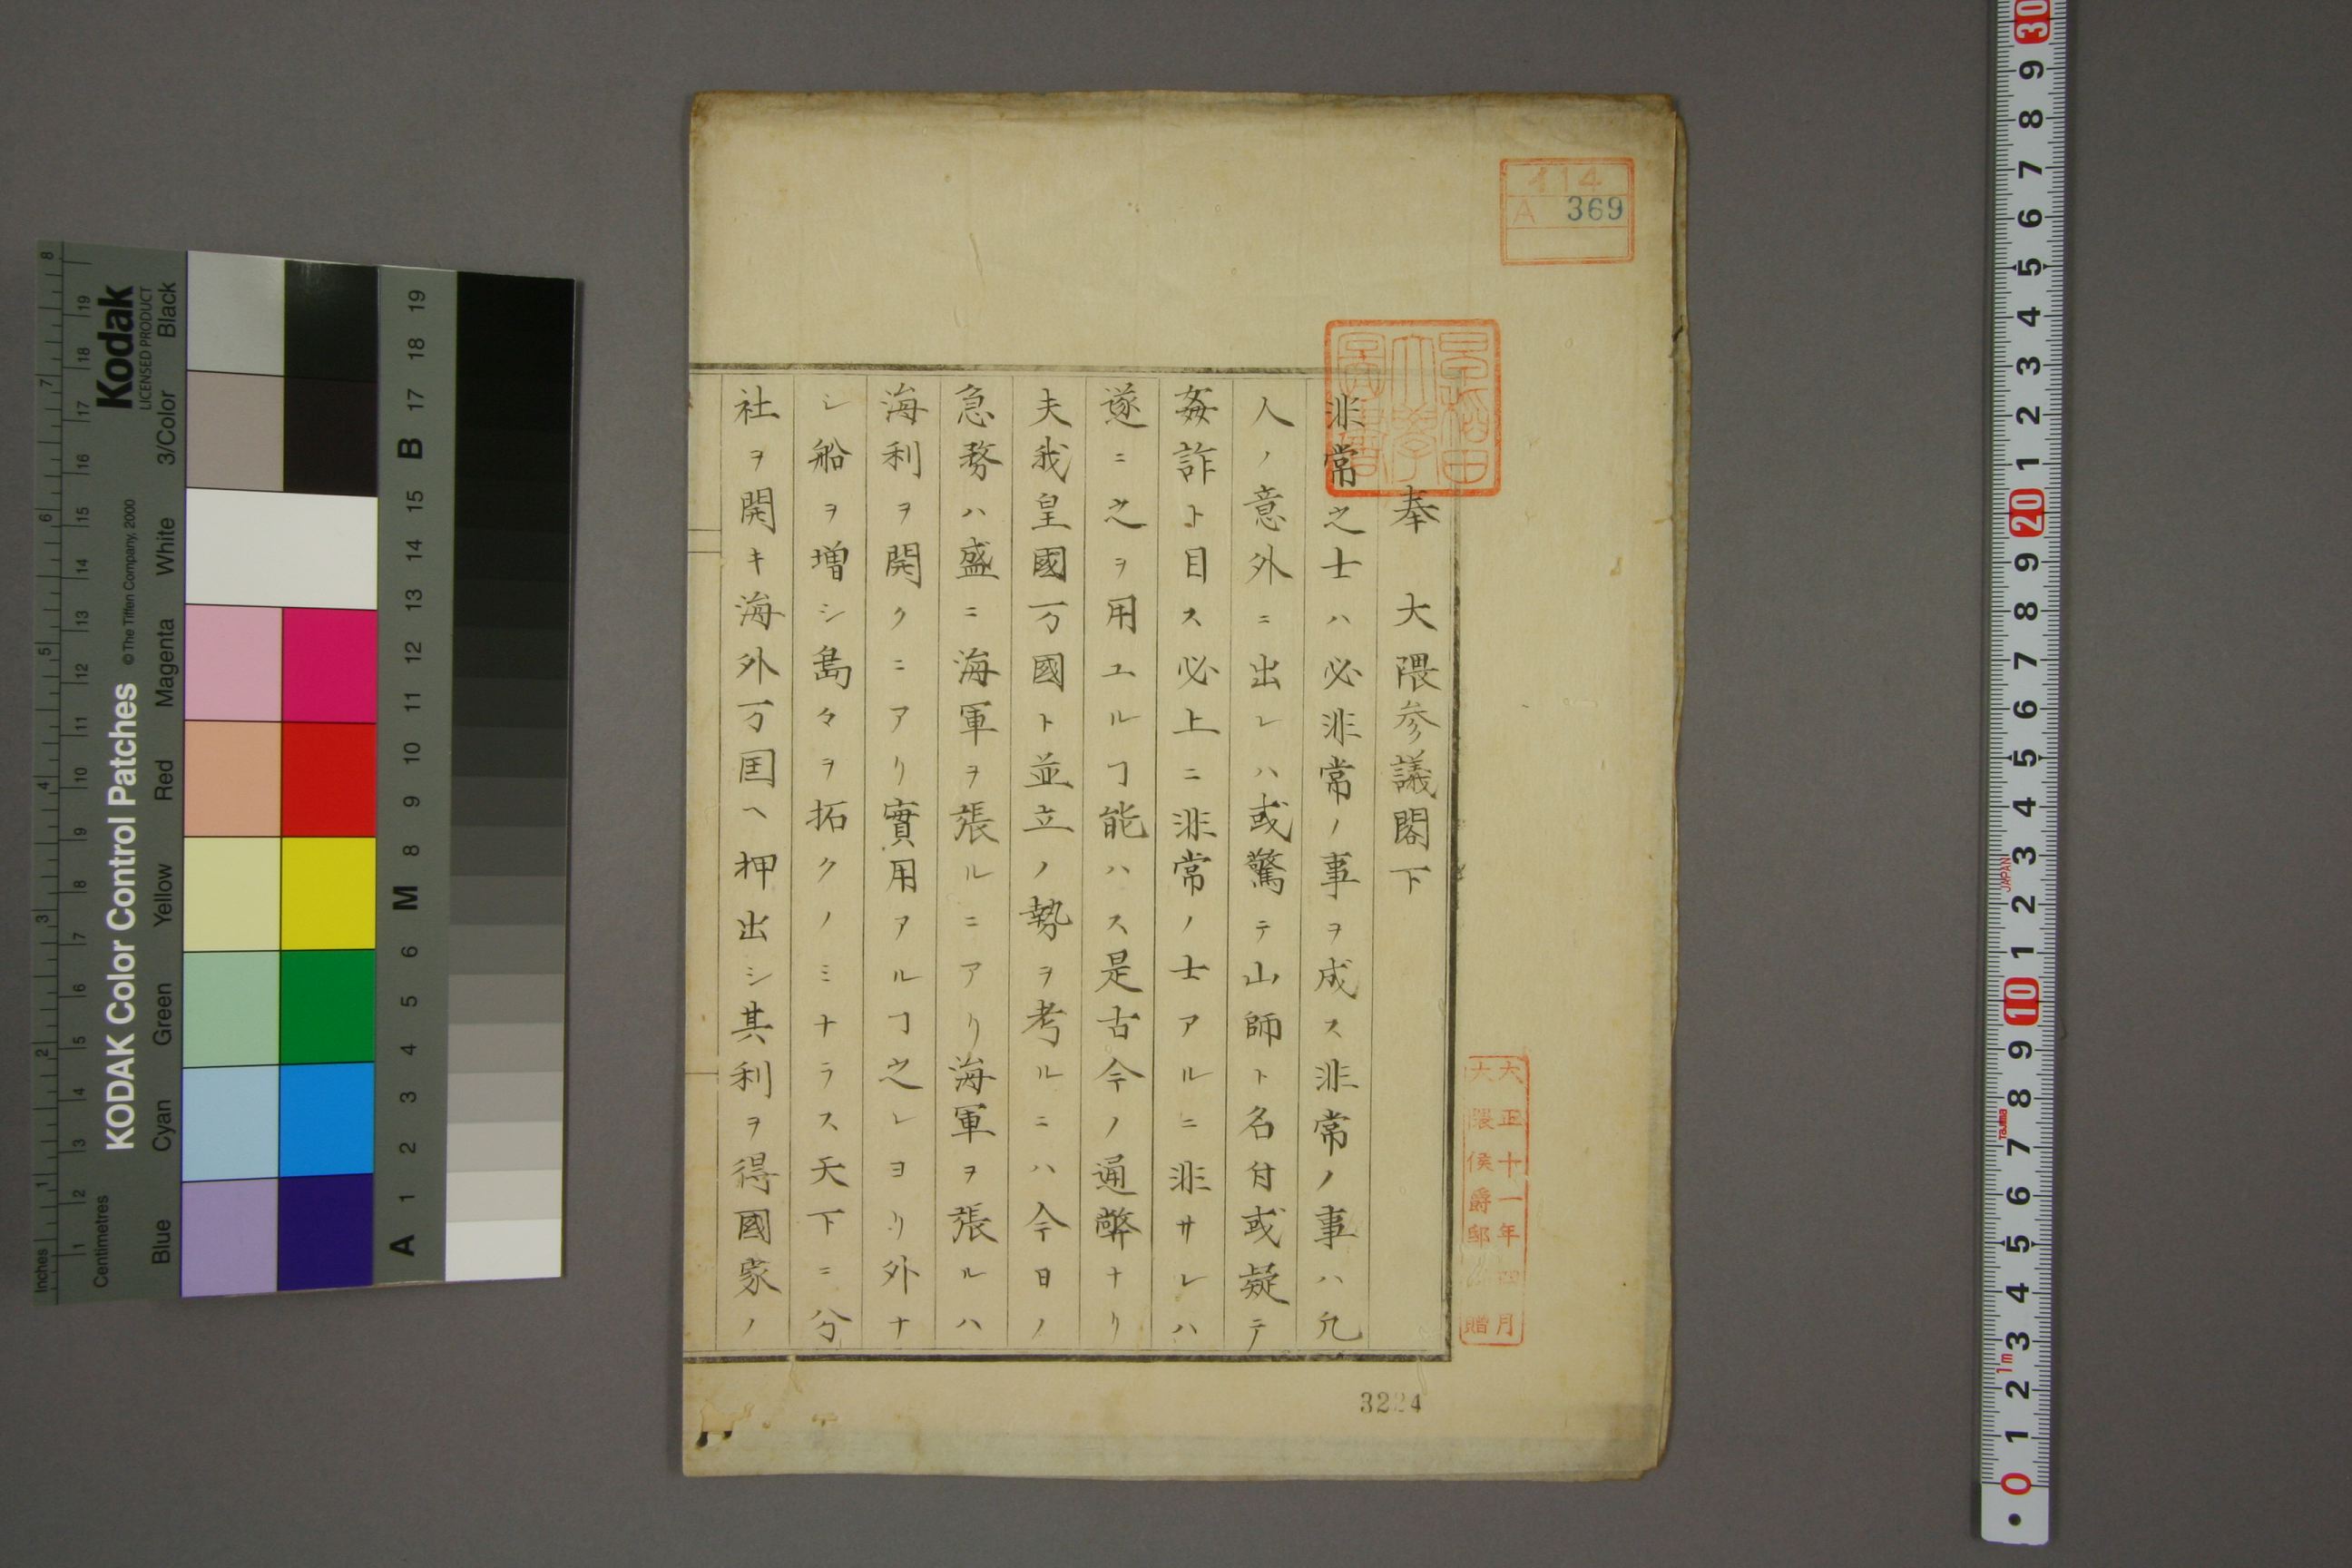 奉　大隈参議閣下
非常之士ハ必非常ノ事ヲ成ス非常ノ事ハ凡
人ノ意外ニ出レハ或驚テ山師ト名付或疑テ
姦詐ト目ス必上ニ非常ノ士アルニ非サレハ
遂ニ之ヲ用ユルヿ能ハス是古今ノ通弊ナリ
夫我皇國万國ト並立ノ勢ヲ考ルニハ今日ノ
急務ハ盛ニ海軍ヲ張ルニアリ海軍ヲ張ルハ
海利ヲ開クニアリ實用アルヿ之レヨリ外ナ
シ船ヲ増シ島々ヲ拓クノミナラス天下ニ分
社ヲ開キ海外万国ヘ押出シ其利ヲ得國家ノ
イ14
A 369
早稲田大學圖書
大正十一年四月
大隈侯爵邸 贈
3224
KODAK Color Control Patches
© The Tiffen Company, 2000
Kodak
LICENSED PRODUCT
Inches
1 2 3 4 5 6 7 8
Centimetres
1 2 3 4 5 6 7 8 9 10 11 12 13 14 15 16 17 18 19
Blue
Cyan
Green
Yellow
Red
Magenta
White
3/Color
Black
A 1 2 3 4 5 6 M 8 9 10 11 12 13 14 15 B 17 18 19
0 1 2 3 4 5 6 7 8 9 10 1 2 3 4 5 6 7 8 9 20 1 2 3 4 5 6 7 8 9 30
1m
Tajima
JAPAN